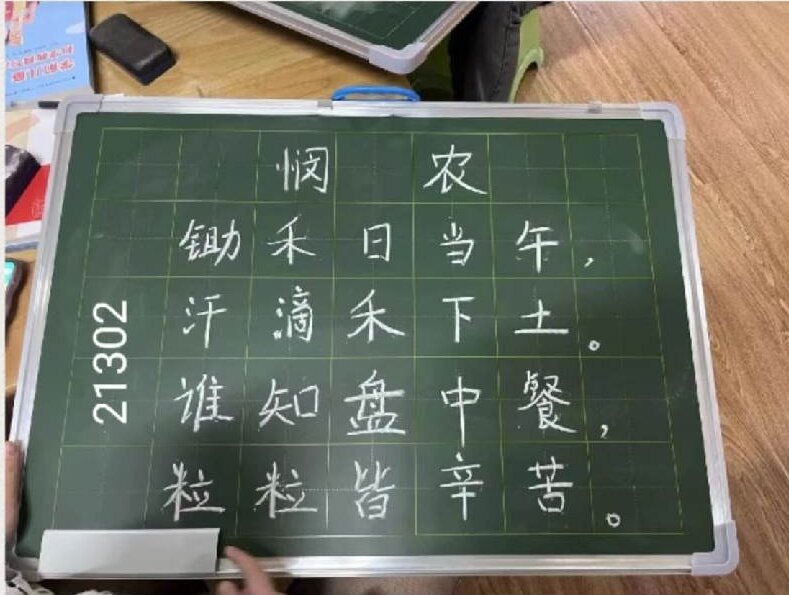 悯农
锄禾日当午，
汗滴禾下土。
谁知盘中餐，
粒粒皆辛苦。
21302